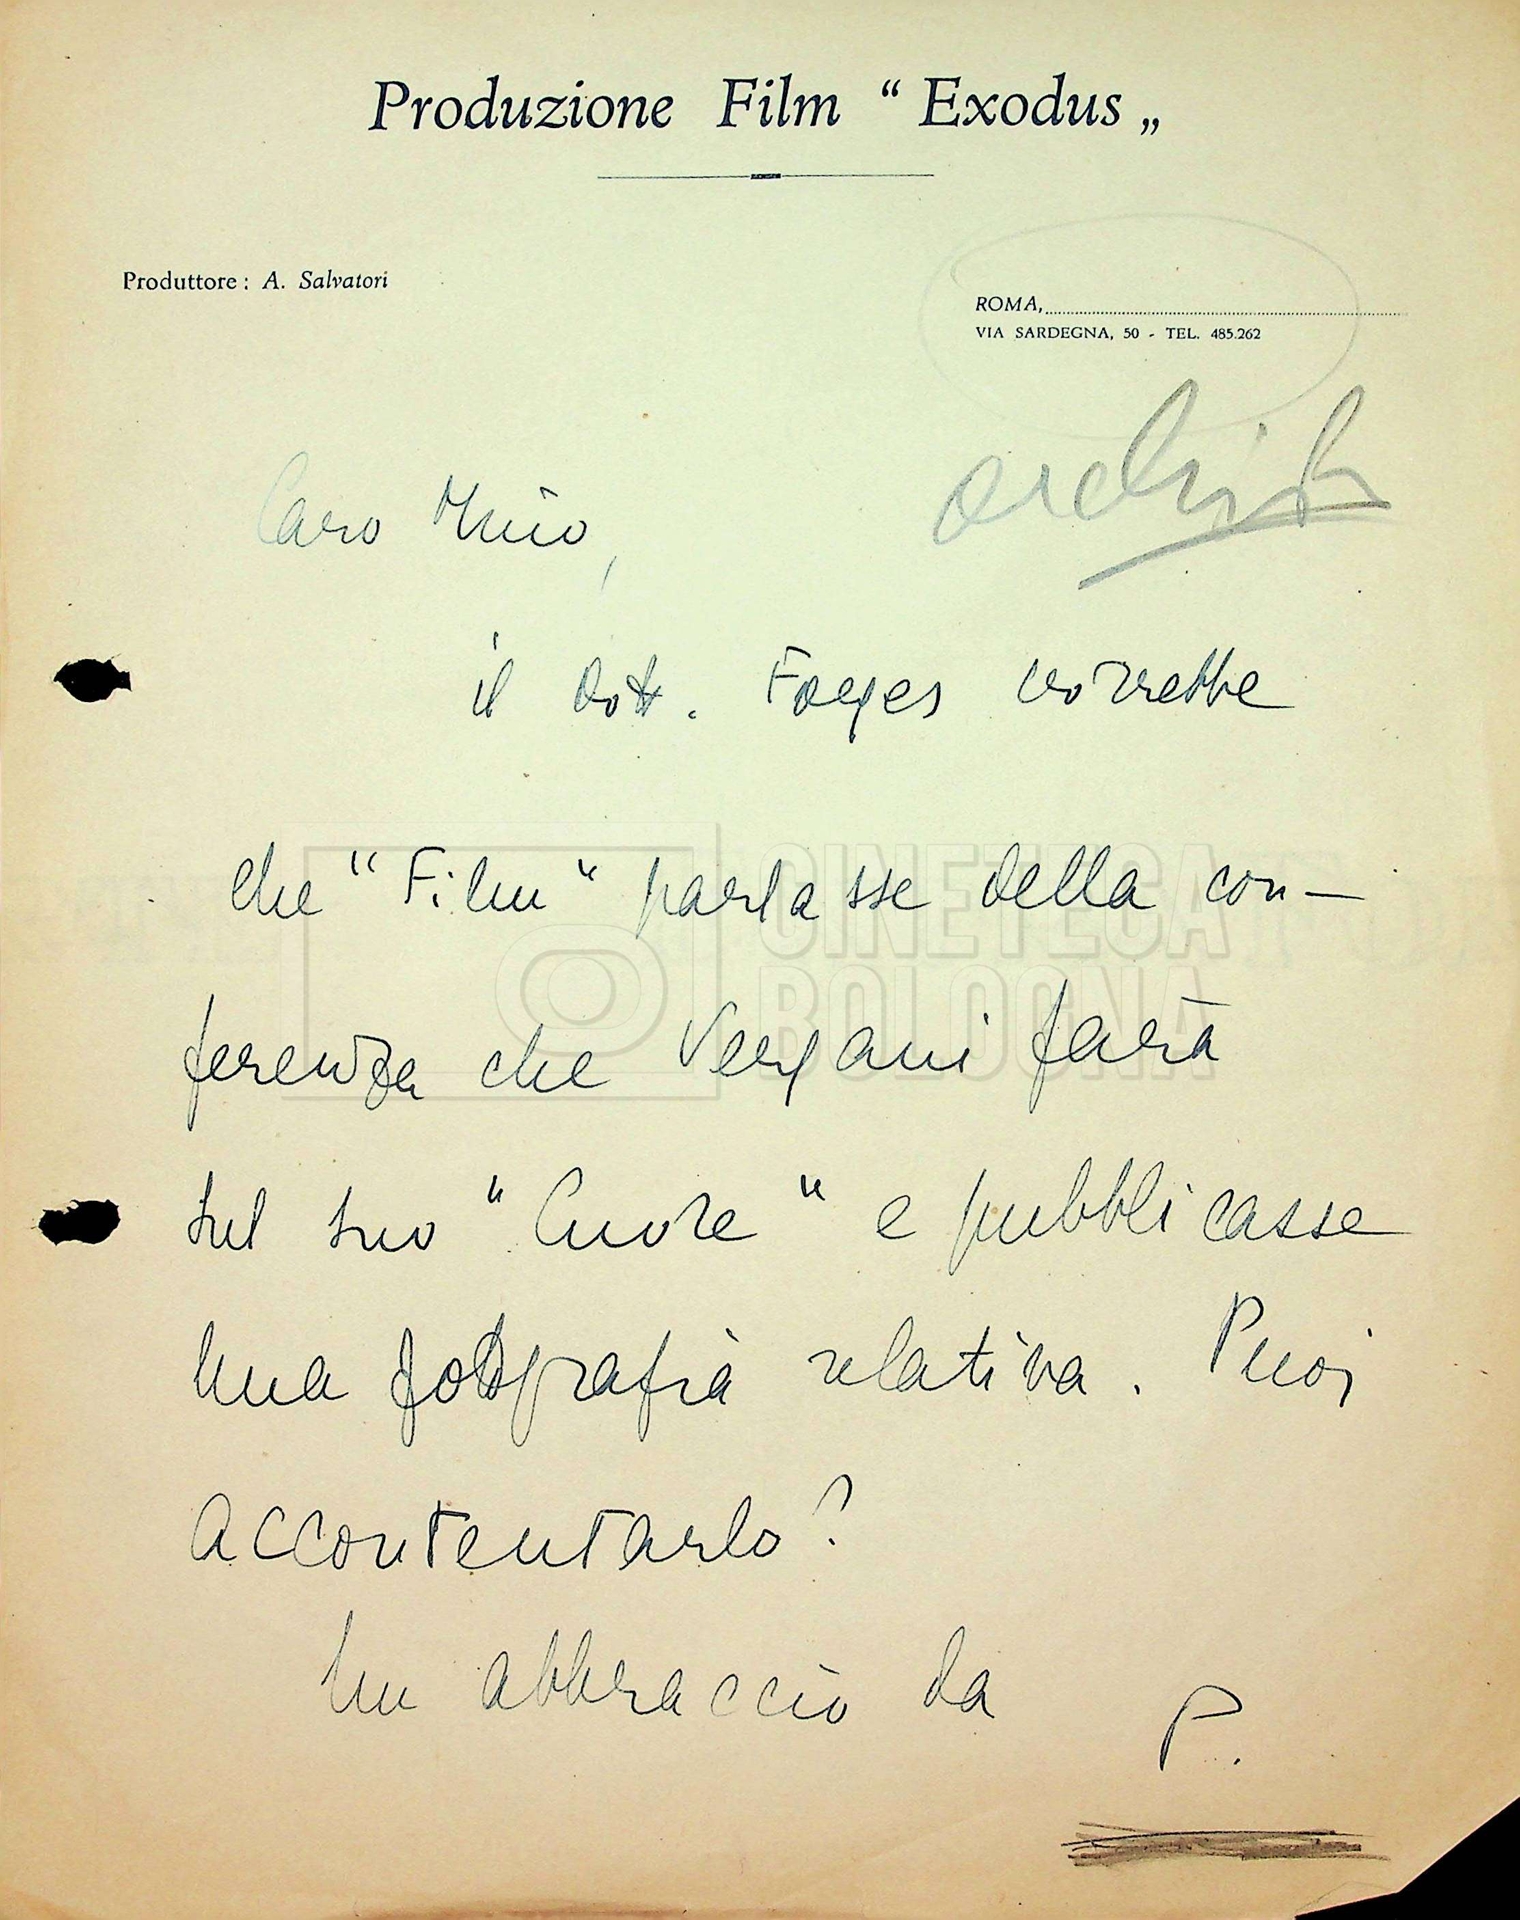 Produzione Film “ Exodus „
Produttore: A. Salvatori
ROMA,
VIA SARDEGNA, 50 - TEL. 485.262
Caro Mino,
il dott. Forges vorrebbe
che "Film" parlasse della con–
ferenza che Vergani farà
sul suo "Cuore" e pubblicasse
una fotografia relativa. Puoi
accontentarlo?
Un abbraccio da
P.
CINETECA
BOLOGNA